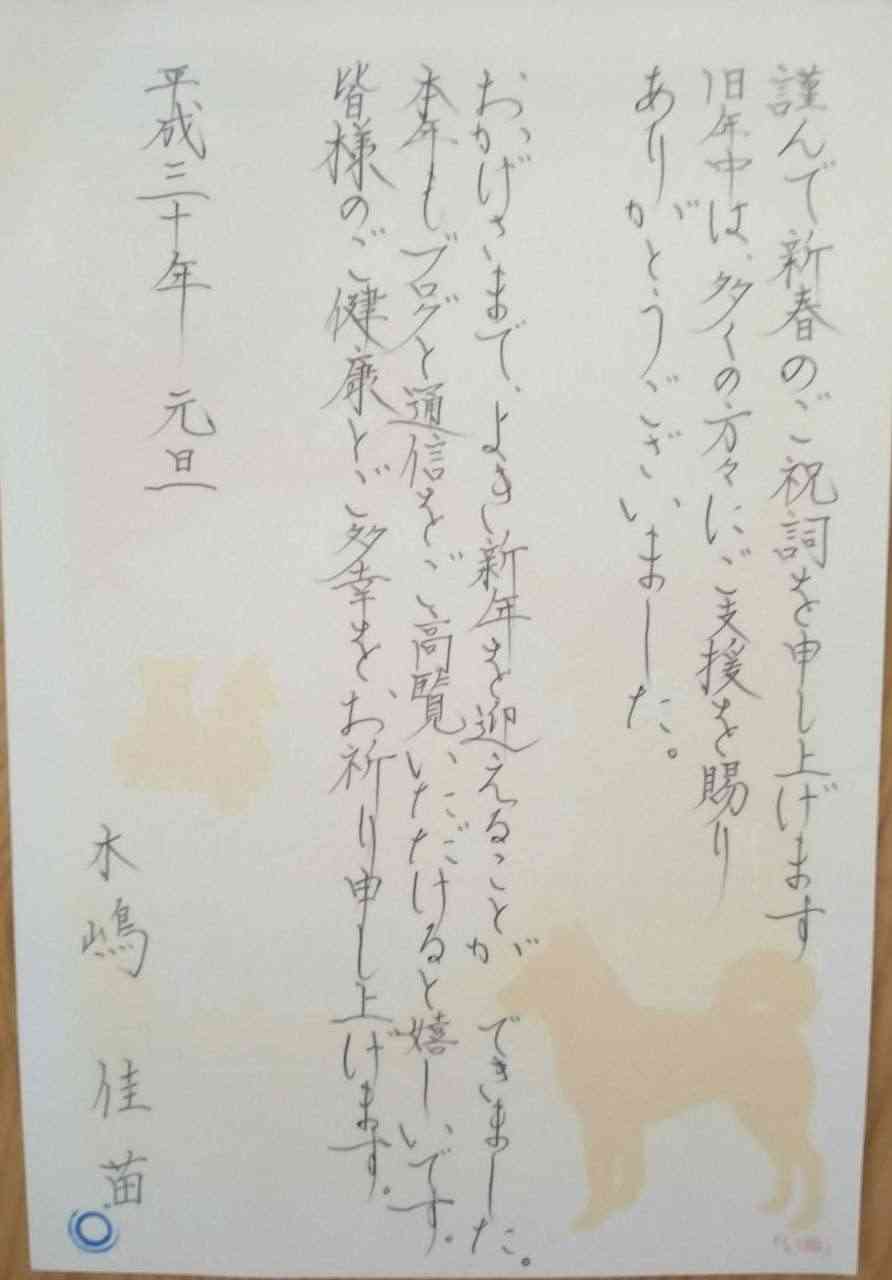 謹んで新春のご祝詞を申し上げます
旧年中は、多くの方々にご支援を賜り
ありがとうございました。
おかげさまで、よき新年を迎えることができました。
本年もブログと通信をご高覧いただけると嬉しいです。
皆様のご健康とご多幸をお祈り申し上げます。
平成三十年 元旦
木嶋 佳苗